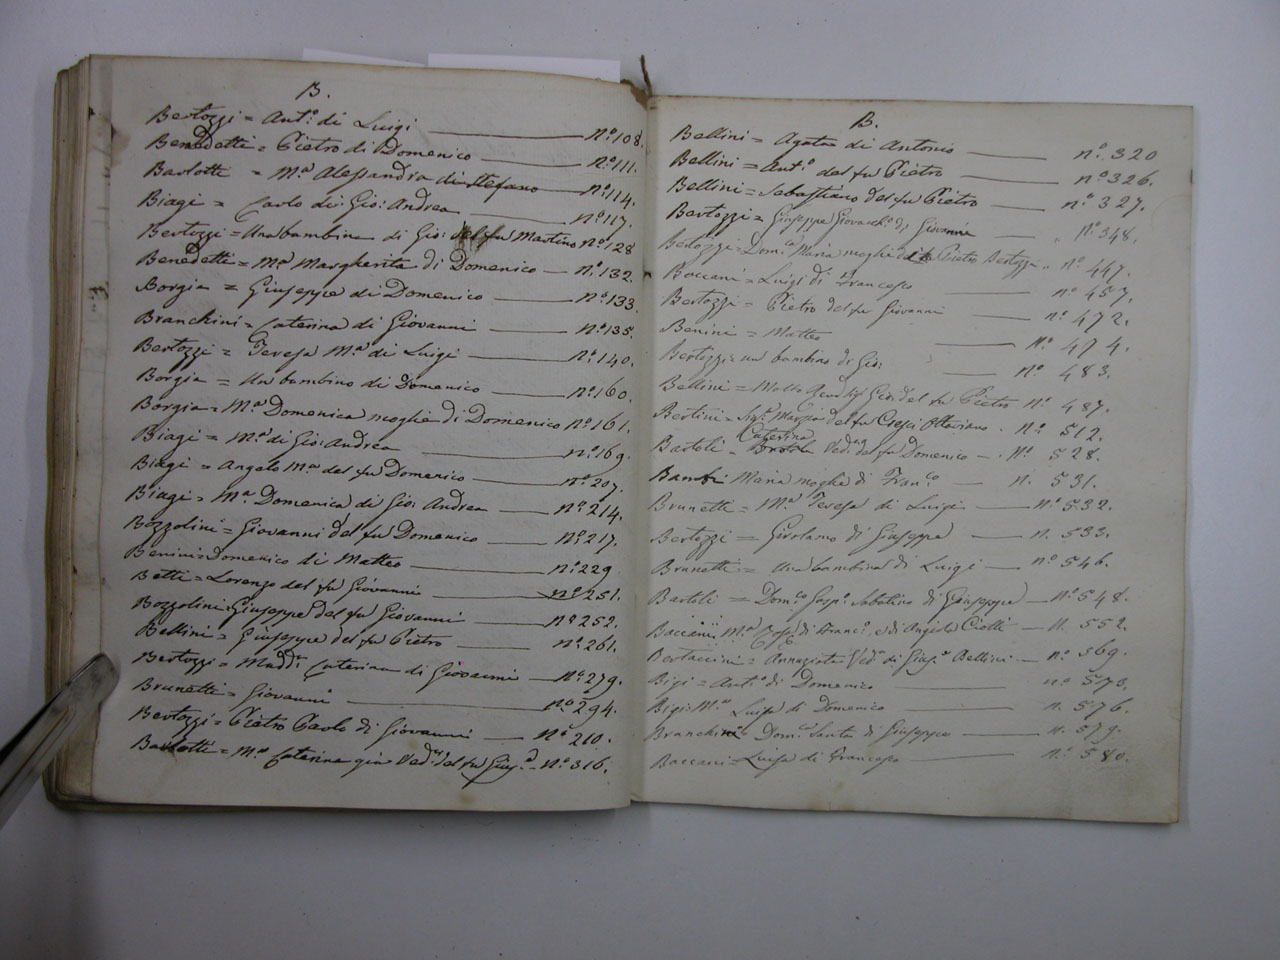 B.
Bertozzi = Ant.o di Luigi n.o 108.
Benedetti = Pietro di Domenico n.o 111.
Barlotti = M.a Alessandra di Stefano n.o 114.
Biagi = Carlo di Gio: Andrea n.o 117.
Bertozzi = Una bambina di Gio: del fu Martino n.o 128
Benedetti = M.a Margherita di Domenico n.o 132.
Borgia = Giuseppe di Domenico n.o 133.
Branchini = Caterina di Giovanni n.o 135.
Bertozzi = Teresa M.a di Luigi n.o 140.
Borgia = Un bambino di Domenico n.o 160.
Borgia = M.a Domenica moglie di Domenico n.o 161.
Biagi = M.a di Gio: Andrea n.o 169.
Biagi = Angelo M.a del fu Domenico n.o 207.
Biagi = M.a Domenica di Gio: Andrea n.o 214.
Bozzolini = Giovanni del fu Domenico n.o 217.
Benini = Domenico di Matteo n.o 229
Betti = Lorenzo del fu Giovanni n.o 251.
Bozzolini Giuseppe del fu Giovanni n.o 252.
Bellini = Giuseppe del fu Pietro n.o 261.
Bertozzi = Madd.a Caterina di Giovanni n.o 279.
Brunetti = Giovanni n.o 294.
Bertozzi = Pietro Paolo di Giovanni n.o 210.
Barlotti = M.a Caterina già Ved.a del fu Gius.e n.o 316.
B.
Bellini = Agata di Antonio n.o 320
Bellini = Ant.o del fu Pietro n.o 326.
Bellini = Sebastiano del fu Pietro n.o 327.
Bertozzi = Giuseppe Giovacch.o di Giovanni n.o 348.
Bertozzi = Dom.ca Maria moglie di Pietro Bertozzi n.o 447.
Boccani = Luigi di Francesco n.o 457.
Bertozzi = Pietro del fu Giovanni n.o 472.
Benini = Matteo n.o 474.
Bertozzi = un bambino di Gio: n.o 483.
Bellini = del fu Pietro n.o 487.
Bertini = del fu Ottaviano n.o 512.
Caterina
Bartoli = Ved.a del fu Domenico n.o 528.
Bambi Maria moglie di Fran.co n. 531.
Brunetti = M.a Teresa di Luigi n.o 532.
Bertozzi = Girolamo di Giuseppe n. 533.
Brunetti = una bambina di Luigi n.o 546.
Bartoli = Dom.co Gasp.e Sabatino di Giuseppe n.o 548.
Boccani M.a di Franc.o e di Angiola Ciolli n. 552.
Bertaccini = Annunziata Ved.a di Gius.e Bellini n.o 569.
Bigi = Ant.o di Domenico n.o 573.
Bigi = M.a Luisa di Domenico n. 576.
Branchini = Dom.ca Santa di Giuseppe n. 579.
Boccani = Luisa di Francesco n.o 580.